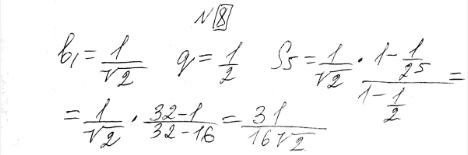 N 8
b₁ = 1/√2 q = 1/2 S₅ = 1/√2 · (1 - 1/2⁵)/(1 - 1/2) =
= 1/√2 · (32-1)/(32-16) = 31/(16√2)